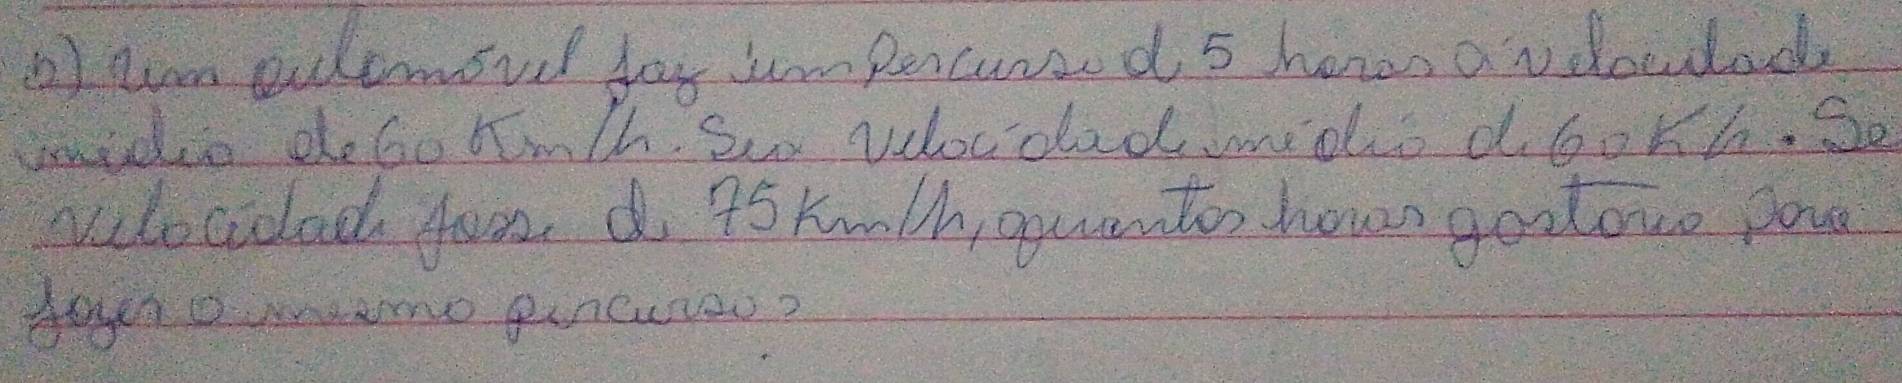 b) Um automóvel faz um Percurso d 5 horas a velocidade
média de 60 Km/h. Sua velocidade média d. 60 K/h. Se
velocidade fosse d. 75 Km/h, quantos horas gastaria para
fazer o mesmo percurso?